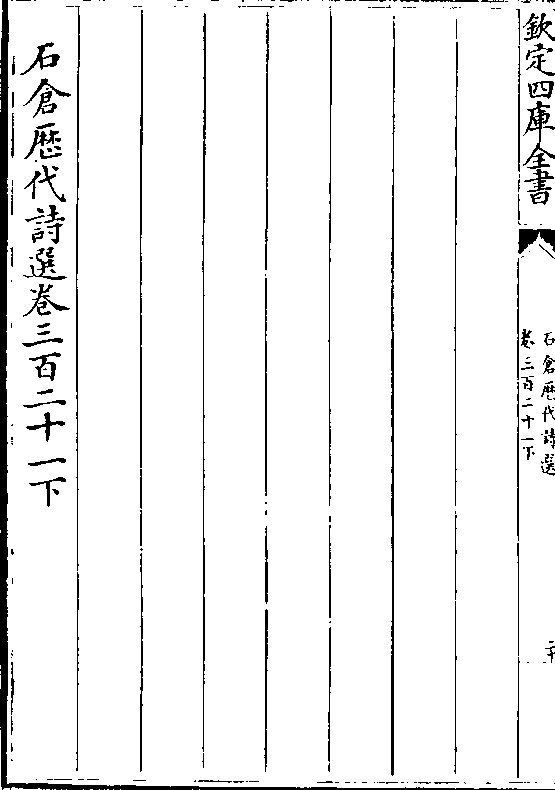 欽定四庫全書
石倉歷代詩選
卷三百二十一下
石倉歷代詩選卷三百二十一下